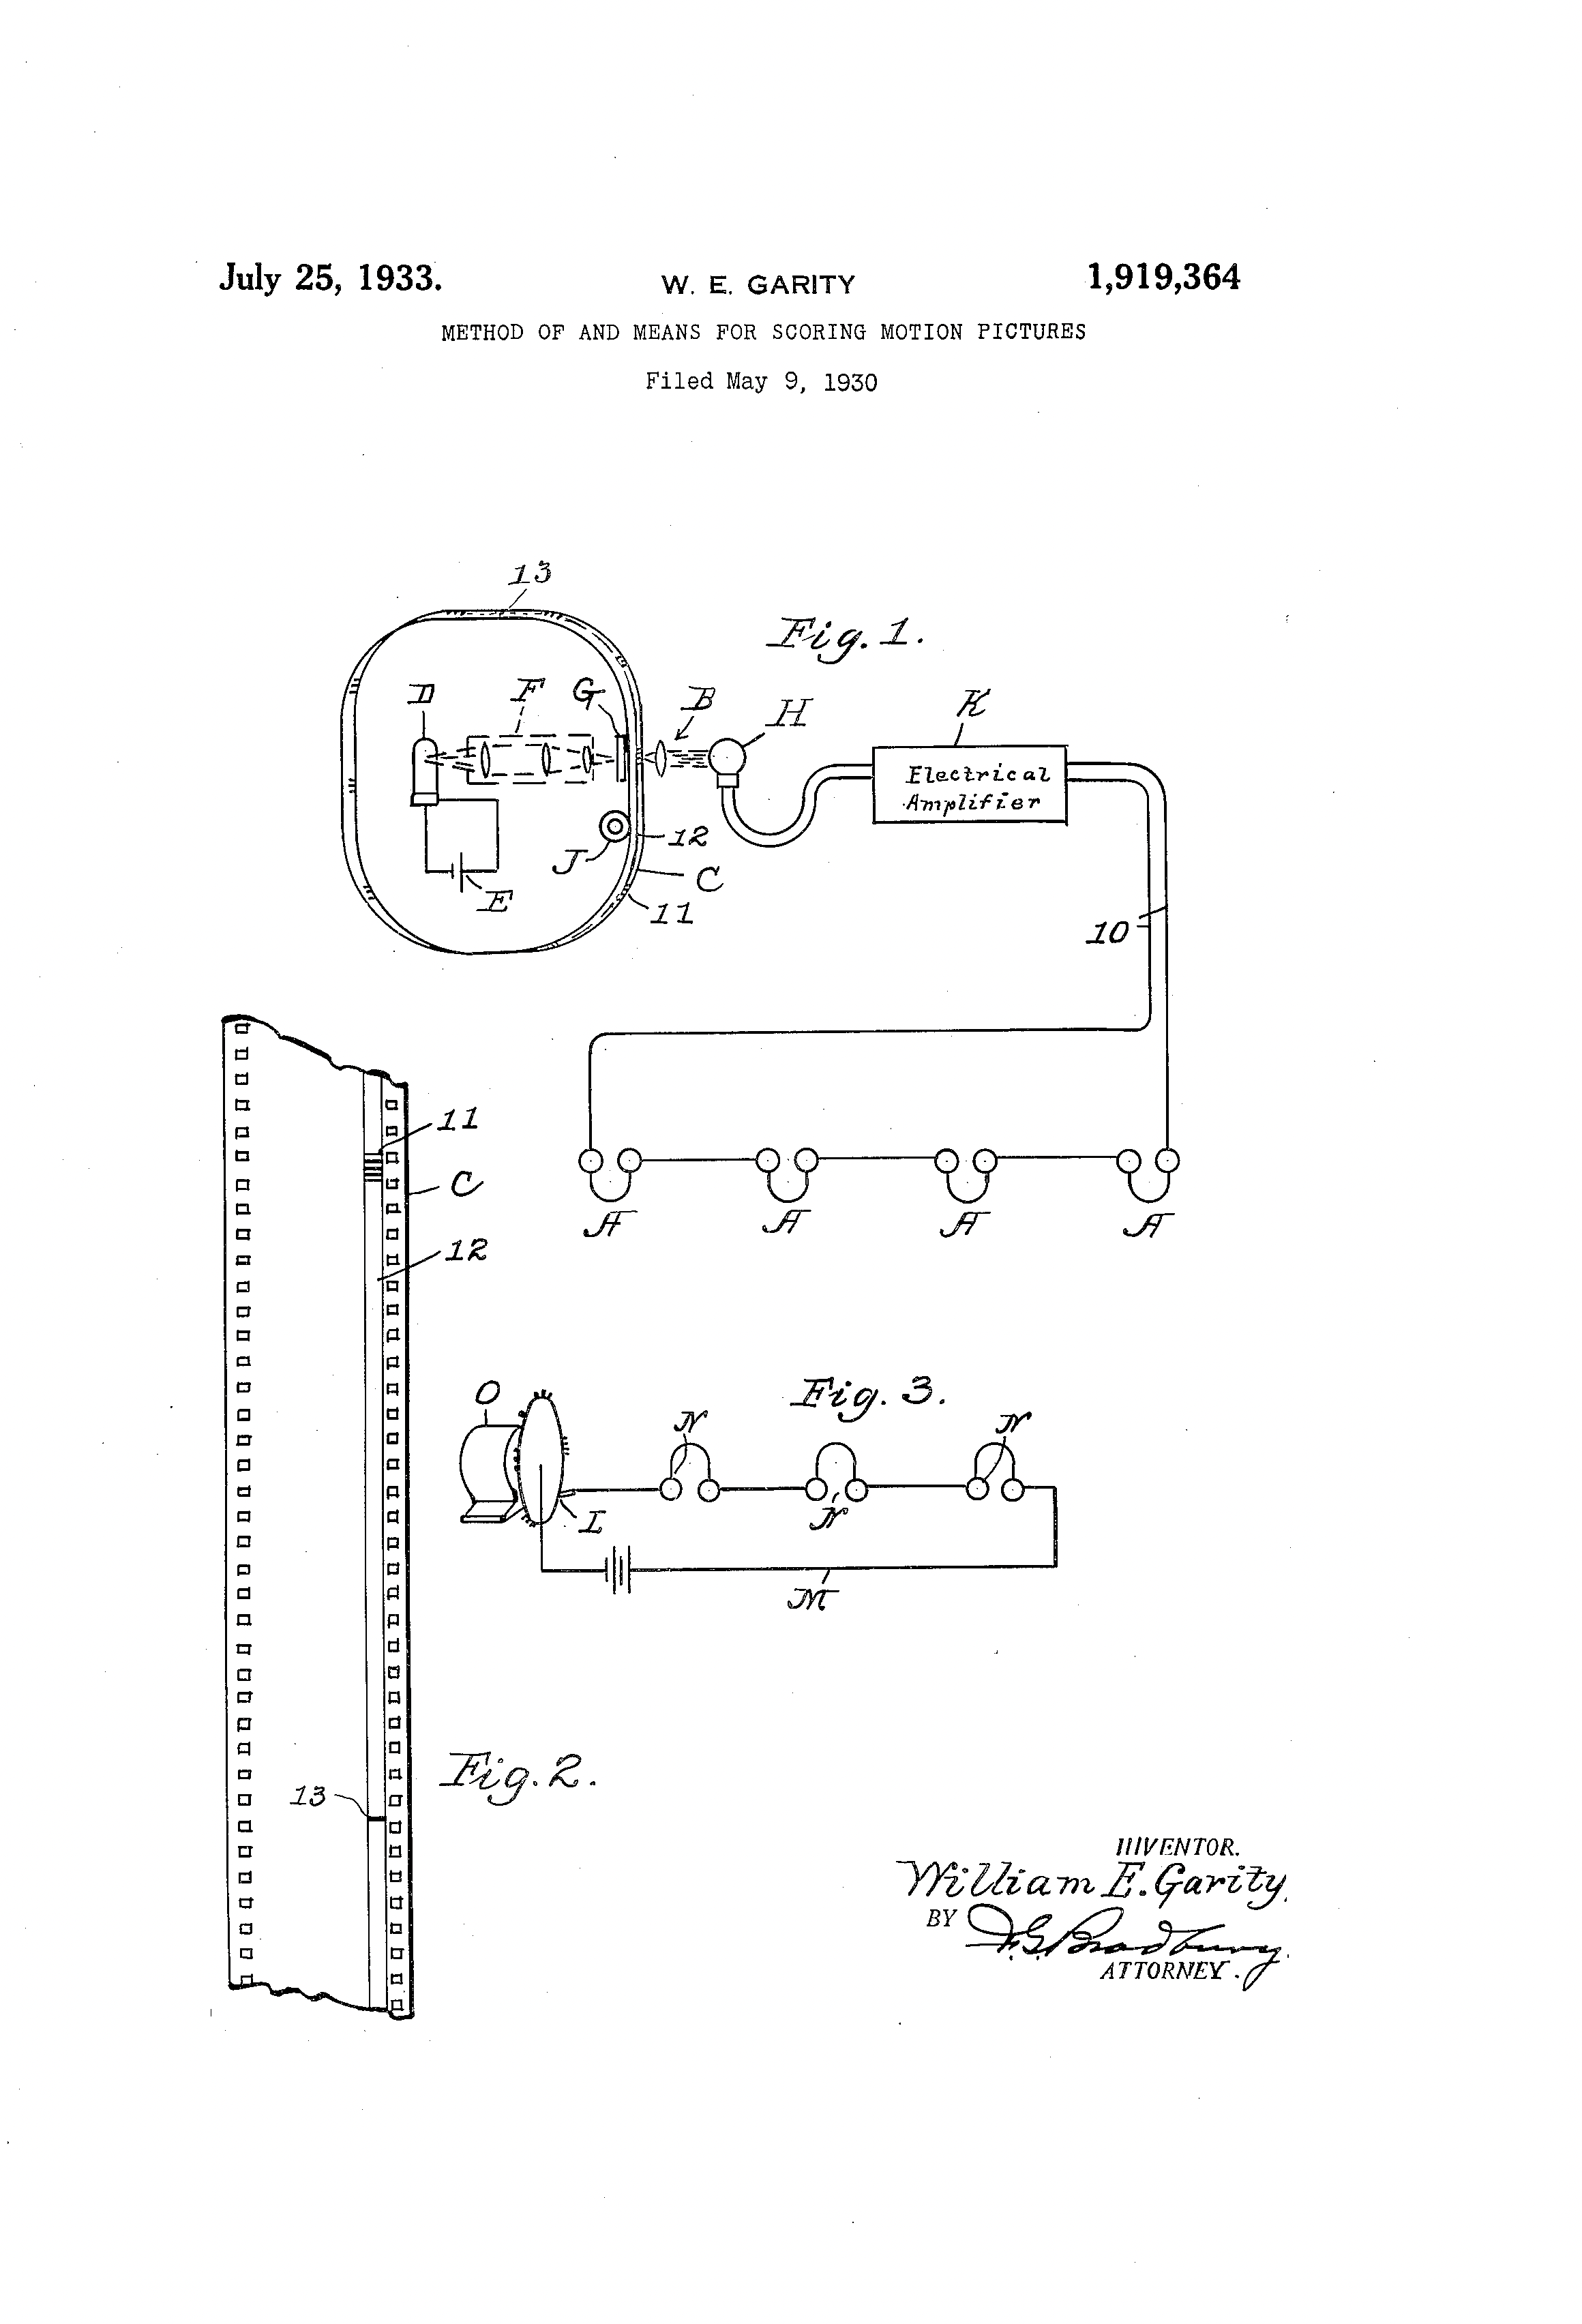 July 25, 1933.
W. E. GARITY
1,919,364
METHOD OF AND MEANS FOR SCORING MOTION PICTURES
Filed May 9, 1930
13
Fig. 1.
D
F
G
B
H
K
Electrical
Amplifier
J
12
C
E
11
10
11
C
12
A
A
A
A
O
Fig. 3.
N
N
N
L
M
Fig. 2.
13
INVENTOR.
William E. Garity.
BY
ATTORNEY.